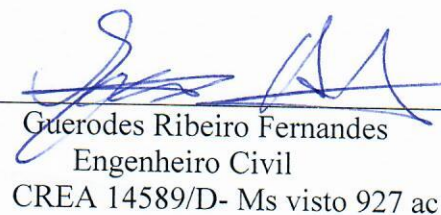 Guerodes Ribeiro Fernandes
Engenheiro Civil
CREA 14589/D- Ms visto 927 ac